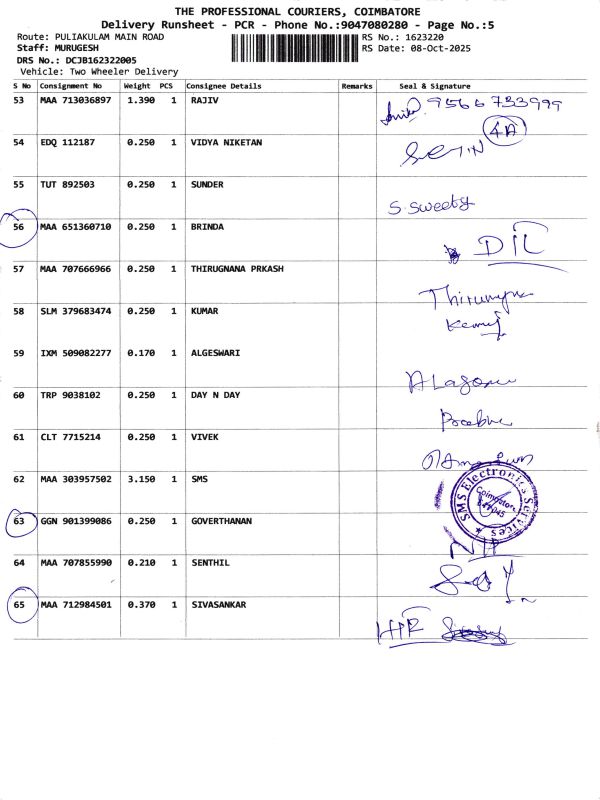 THE PROFESSIONAL COURIERS, COIMBATORE
Delivery Runsheet - PCR - Phone No.:9047080280 - Page No.:5
Route: PULIAKULAM MAIN ROAD RS No.: 1623220
Staff: MURUGESH RS Date: 08-Oct-2025
DRS No.: DCJB162322005
Vehicle: Two Wheeler Delivery
S No Consignment No Weight PCS Consignee Details Remarks Seal & Signature
53 MAA 713036897 1.390 1 RAJIV
9566733999
4A
54 EDQ 112187 0.250 1 VIDYA NIKETAN
55 TUT 892503 0.250 1 SUNDER
S. Sweety
56 MAA 651360710 0.250 1 BRINDA
D/L
57 MAA 707666966 0.250 1 THIRUGNANA PRKASH
58 SLM 379683474 0.250 1 KUMAR
59 IXM 509082277 0.170 1 ALGESWARI
60 TRP 9038102 0.250 1 DAY N DAY
61 CLT 7715214 0.250 1 VIVEK
62 MAA 303957502 3.150 1 SMS
SMS Electronics Services
Coimbatore
63 GGN 901399086 0.250 1 GOVERTHANAN
64 MAA 707855990 0.210 1 SENTHIL
65 MAA 712984501 0.370 1 SIVASANKAR